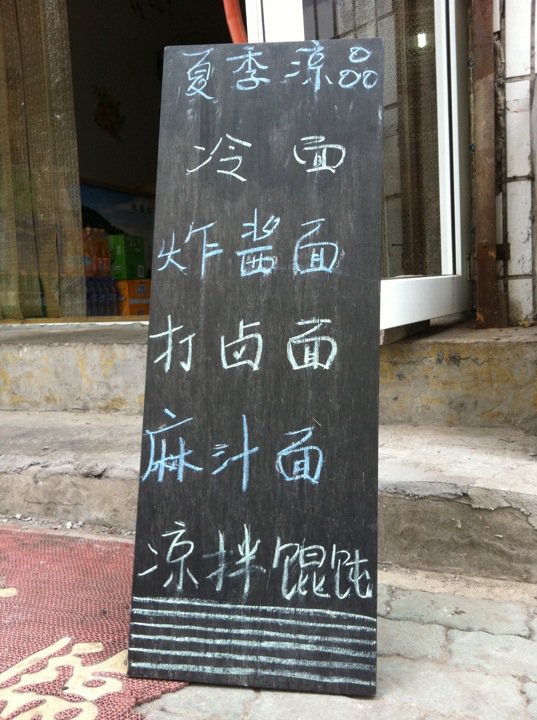 夏季凉品
冷面
炸酱面
打卤面
麻汁面
凉拌馄饨